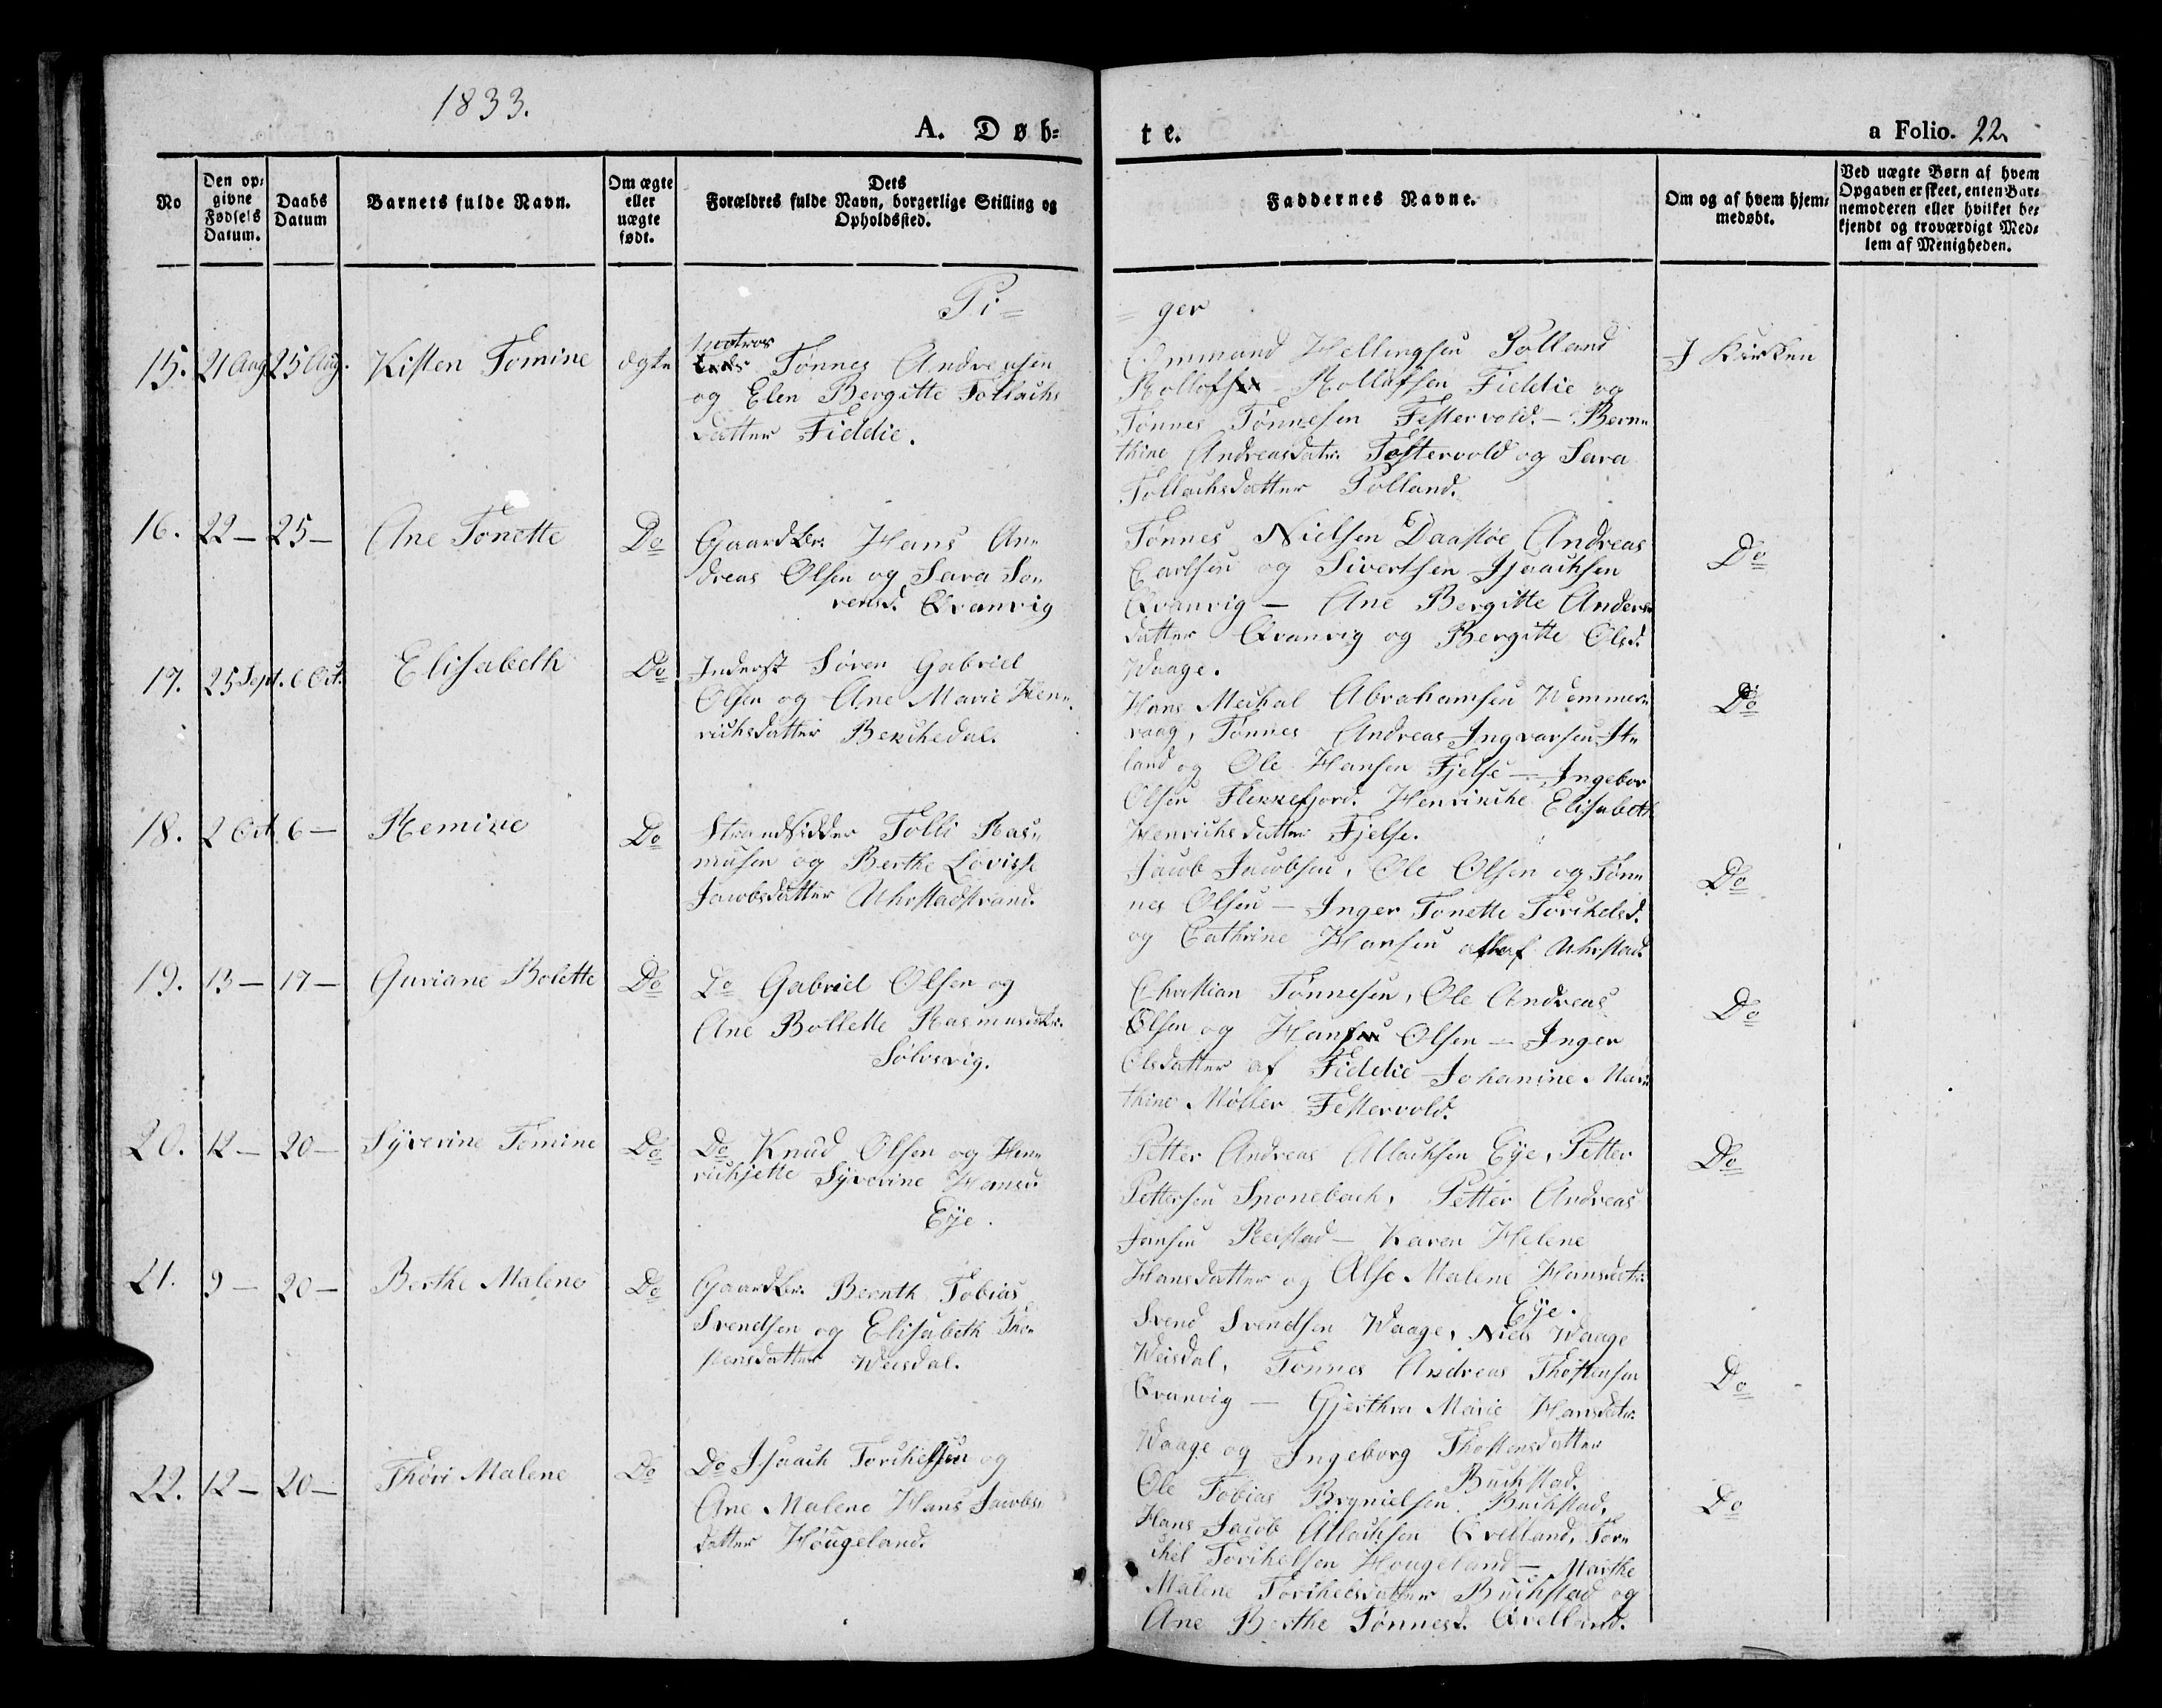 1833.
A. Døb=
te.
a Folio. 22.
No
Den op=
givne
Fødsels
Datum.
Daabs
Datum
Barnets fulde Navn.
Om ægte
eller
uægte
født.
Dets
Forældres fulde Navn, borgerlige Stilling og
Opholdssted.
Faddernes Navne.
Om og af hvem hjem=
medøbt.
Ved uægte Børn af hvem
Opgaven er skeet, enten Bar=
nemoderen eller hvilket be=
kjendt og troværdigt Med=
lem af Menigheden.
Pi=
=ger
15. 21 Aug 25 Aug. Kisten Tomine ægte
Tønnes Andreasen
og Elen Bergitte Tollachs
datter Fieldie.
Ommund Hellingsen Tolland
Rollofsen Fieldie og
Tønnes Tønnesen Festervold. — Bern=
thine Andreasdatr. Festervold og Sara
Tollachsdatter Tolland.
I Kirken
16. 22 — 25 — Ane Tonette Do
Gaardbr. Hans An=
dreas Olsen og Sara Sø=
rensd. Qvanvig
Tønnes Nielsen Daasloe Andreas
Carlsen og Sivertsen Isaachsen
Qvanvig — Ane Bergitte Anders
datter Qvanvig og Bergitte Olsd.
Waage.
Do
17. 25 Sept. 6 Oct. Elisabeth Do
Inderst Søren Gabriel
Olsen og Ane Marie Hen=
richsdatter Berchedal.
Hans Meckal Abrahamsen Wemmer=
vaag, Tønnes Andreas Ingvarsen St=
land og Ole Hansen Fjelse — Ingebor
Olsen Flekkefjord. Henricke Elisabeth
Henrichsdatter Fjelse.
Do
18. 2 Oct 6 — Remine Do
Strandsidder Tolli Ras=
musen og Berthe Lovisse
Jacobsdatter Uhrstadstrand.
Jacob Jacobsen, Ole Olsen og Tøn=
nes Olsen — Inger Tonette Torkelsd.
og Cathrine Hansen alle af Uhrstad.
Do
19. 13 — 17 — Guriane Bolette Do
Do Gabriel Olsen og
Ane Bollette Rasmusdtr.
Sølvsvig.
Christian Tønnesen, Ole Andreas
Olsen og Hans Olsen — Inger
Olsdatter af Fieldie Johanine Mar=
thine Møller Festervold.
Do
20. 12 — 20 — Syverine Tomine Do
Do Knud Olsen og Hen=
richjette Syverine Hansd
Eÿe.
Petter Andreas Allachsen Eÿe, Petter
Pettersen Sponebach, Petter Andreas
Jansen Reistad — Karen Helene
Hansdatter og Else Malene Hansdatr.
Eÿe.
Do
21. 9 — 20 — Berthe Malene Do
Gaardbr. Bernth Tobias
Svendsen og Elisabeth Tho=
stensdatter Weisdal.
Svend Svendsen Waage, Niels Waage
Weisdal, Tønnes Andreas Thostensen
Qvanvig — Gjerthru Marie Hansdatr.
Waage og Ingeborg Thostensdatter
Buchstad.
Do
22. 12 — 20 — Thori Malene Do
Do Isaach Torchelsen og
Ane Malene Hans Jacobs
datter Høugeland.
Ole Tobias Brynielsen Buchstad,
Hans Jacob Allachsen Qvelland, Tor=
chel Torchelsen Hougeland — Marthe
Malene Torchelsdatter Buchstad og
Ane Berthe Tønnesd. Qvelland.
Do